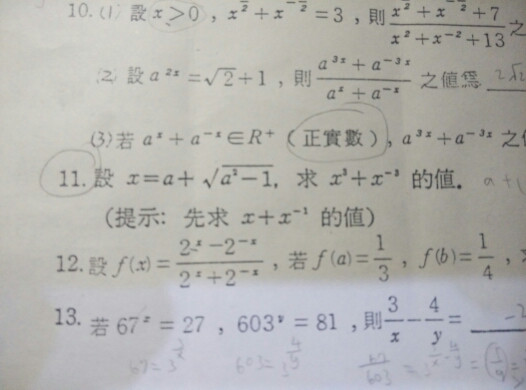 10. (1) 設 x>0 , x^{\frac{}{2}} + x^{-\frac{}{2}} = 3 , 則 \frac{x^{\frac{}{2}} + x^{-\frac{}{2}} + 7}{x^2 + x^{-2} + 13} 之
(2) 設 a^{2x} = √2 + 1 , 則 \frac{a^{3x} + a^{-3x}}{a^x + a^{-x}} 之值為 2√2
(3) 若 a^x + a^{-x} ∈ R^+ (正實數), a^{3x} + a^{-3x} 之
11. 設 x = a + √(a²−1), 求 x³ + x⁻³ 的值. a+
(提示: 先求 x + x⁻¹ 的值)
12. 設 f(x) = \frac{2^x − 2^{-x}}{2^x + 2^{-x}} , 若 f(a) = \frac{1}{3} , f(b) = \frac{1}{4} ,
13. 若 67^x = 27 , 603^y = 81 , 則 \frac{3}{x} − \frac{4}{y} = −2
67=3^{\frac{3}{x}} 603=3^{\frac{4}{y}} \frac{67}{603} = 3^{\frac{3}{x}-\frac{4}{y}} = (\frac{1}{9}) =